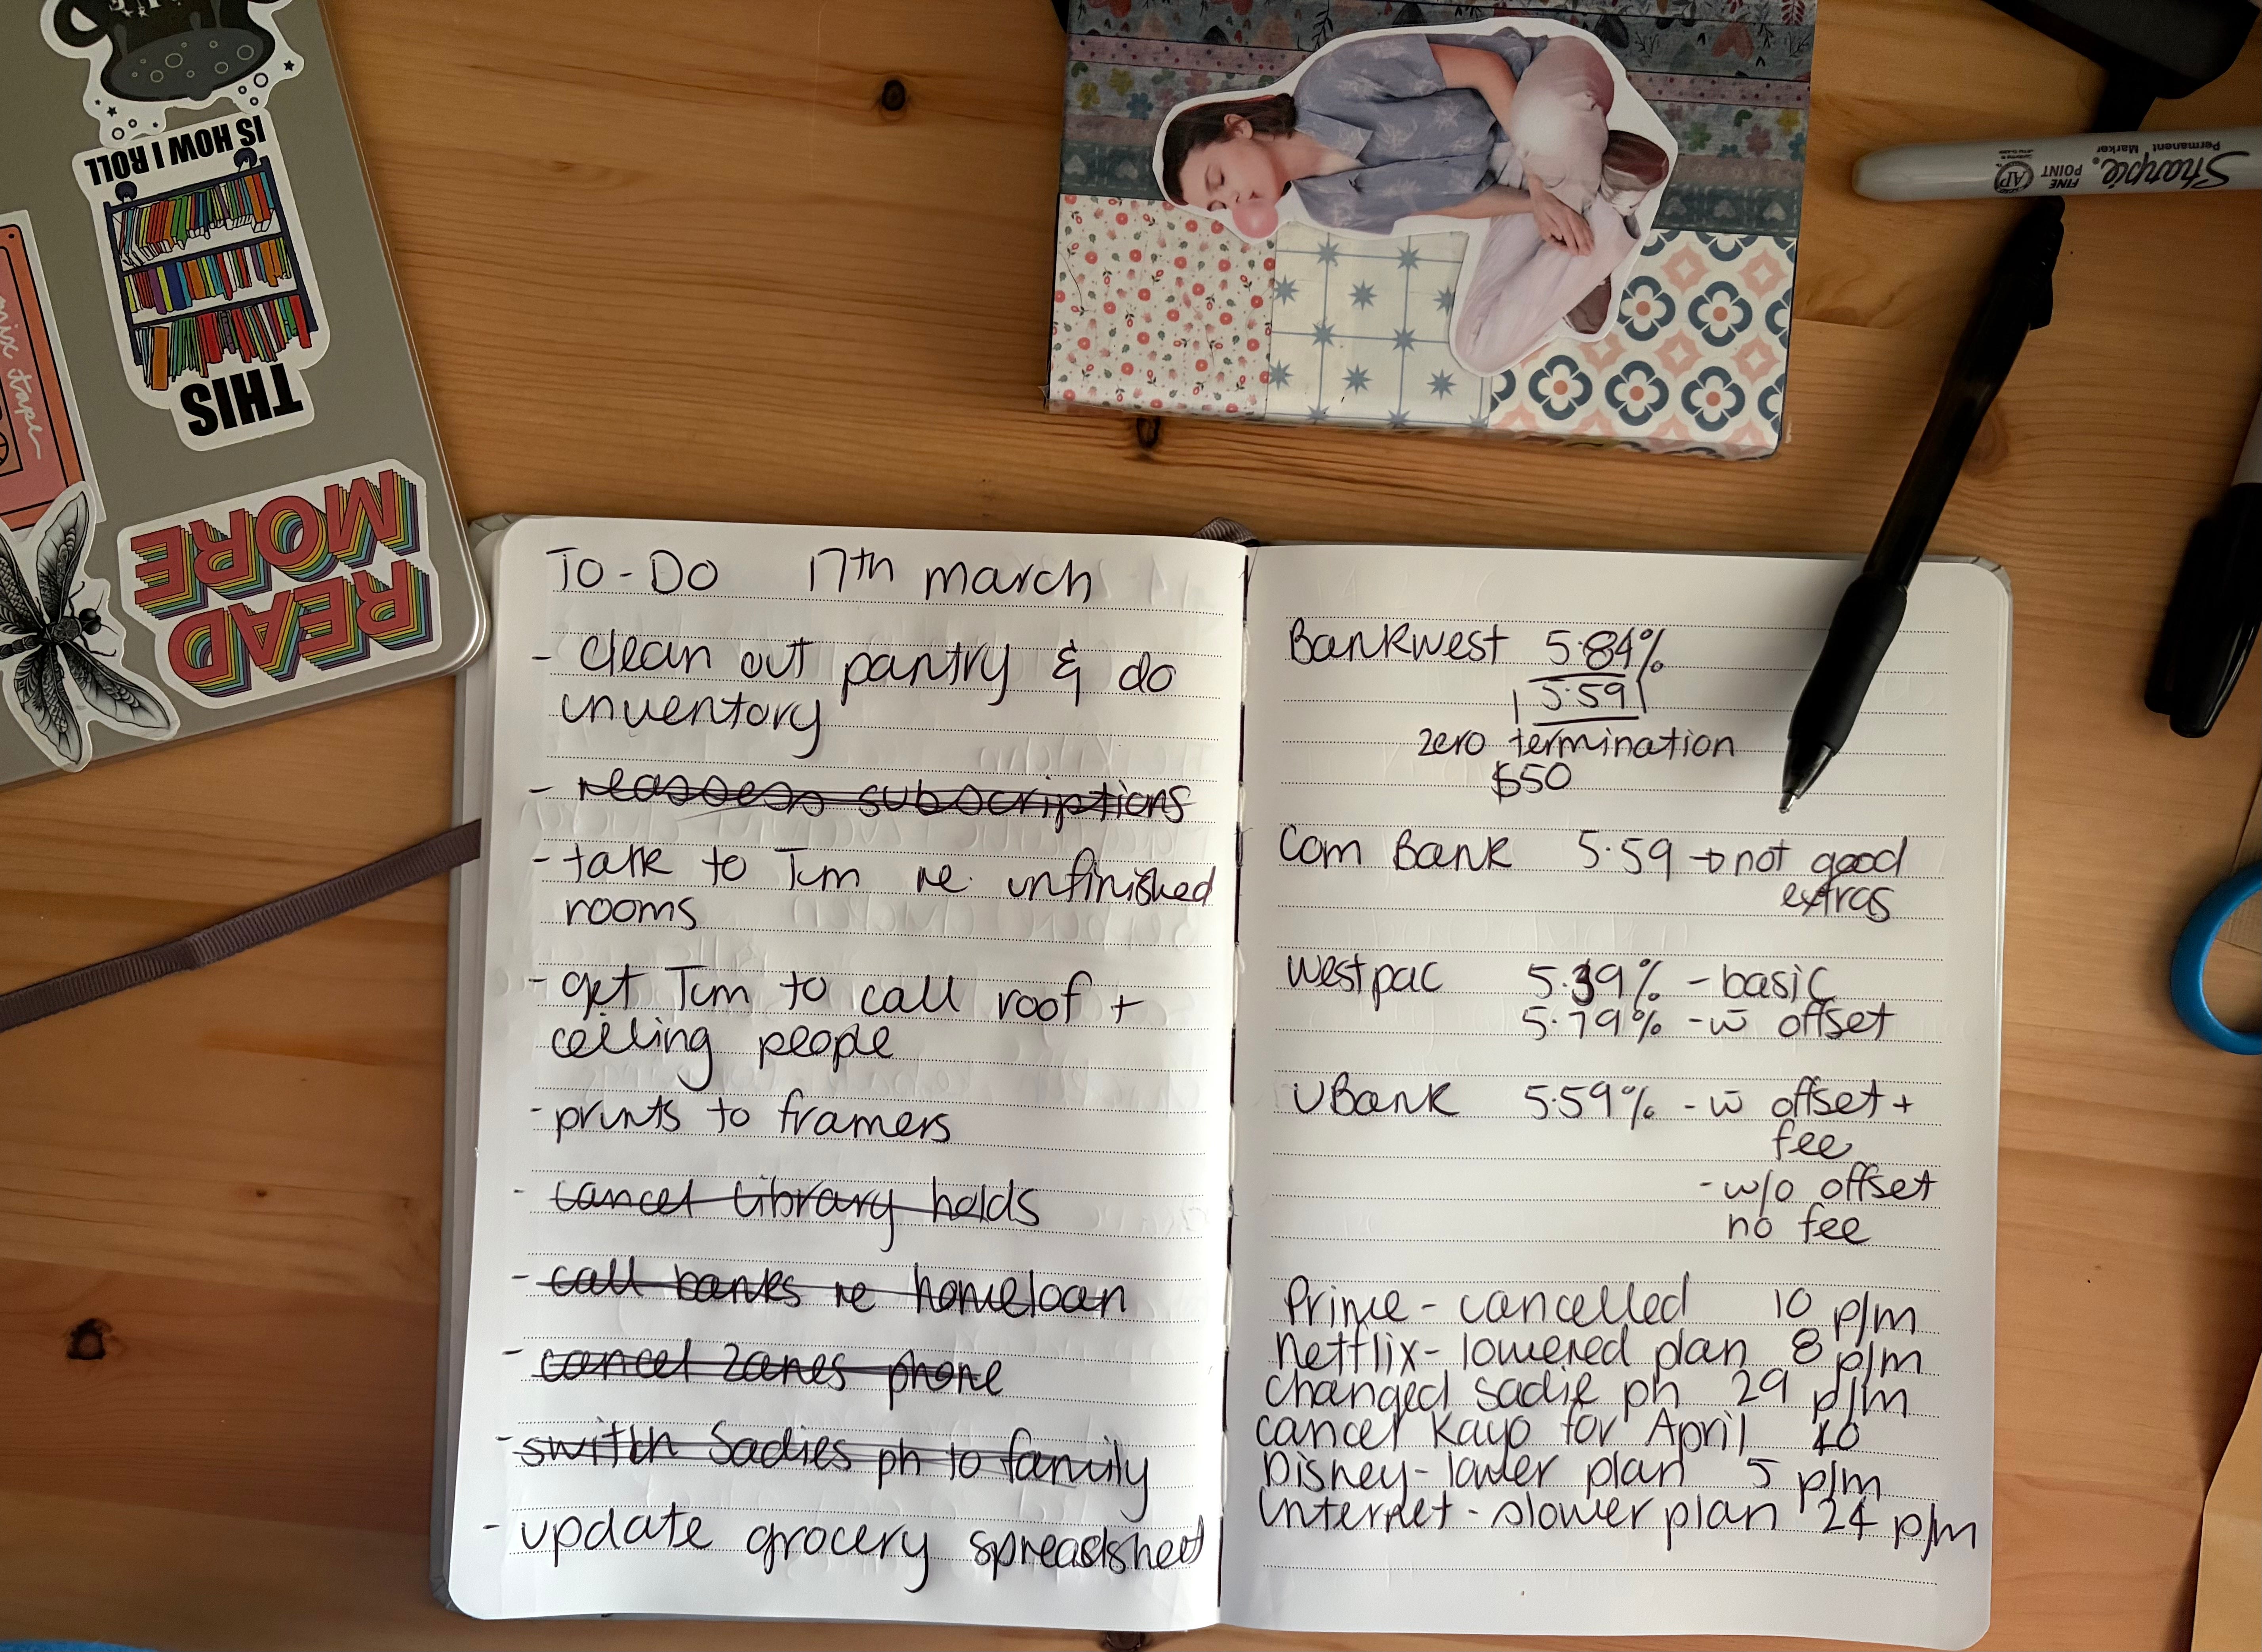 IS HOW I ROLL
THIS
mix tape
READ
MORE
Sharpie.
Permanent Marker
FINE
POINT
AP
To-Do 17th march
- clean out pantry & do
inventory
- reassess subscriptions
- talk to Tim re. unfinished
rooms
- get Tim to call roof +
ceiling people
- prints to framers
- cancel library holds
- call banks re homeloan
- cancel Zanes phone
- switch Sadies ph to family
- update grocery spreadsheet
Bankwest 5.84%
5.59
zero termination
$50
Com Bank 5.59 → not good
extras
Westpac 5.39% - basic
5.79% - w̄ offset
UBank 5.59% - w̄ offset +
fee
- w/o offset
no fee
Prime - cancelled 10 p/m
Netflix - lowered plan 8 p/m
changed sadie ph 29 p/m
cancel Kayo for April
Disney - lower plan 5 p/m
Internet - slower plan 24 p/m